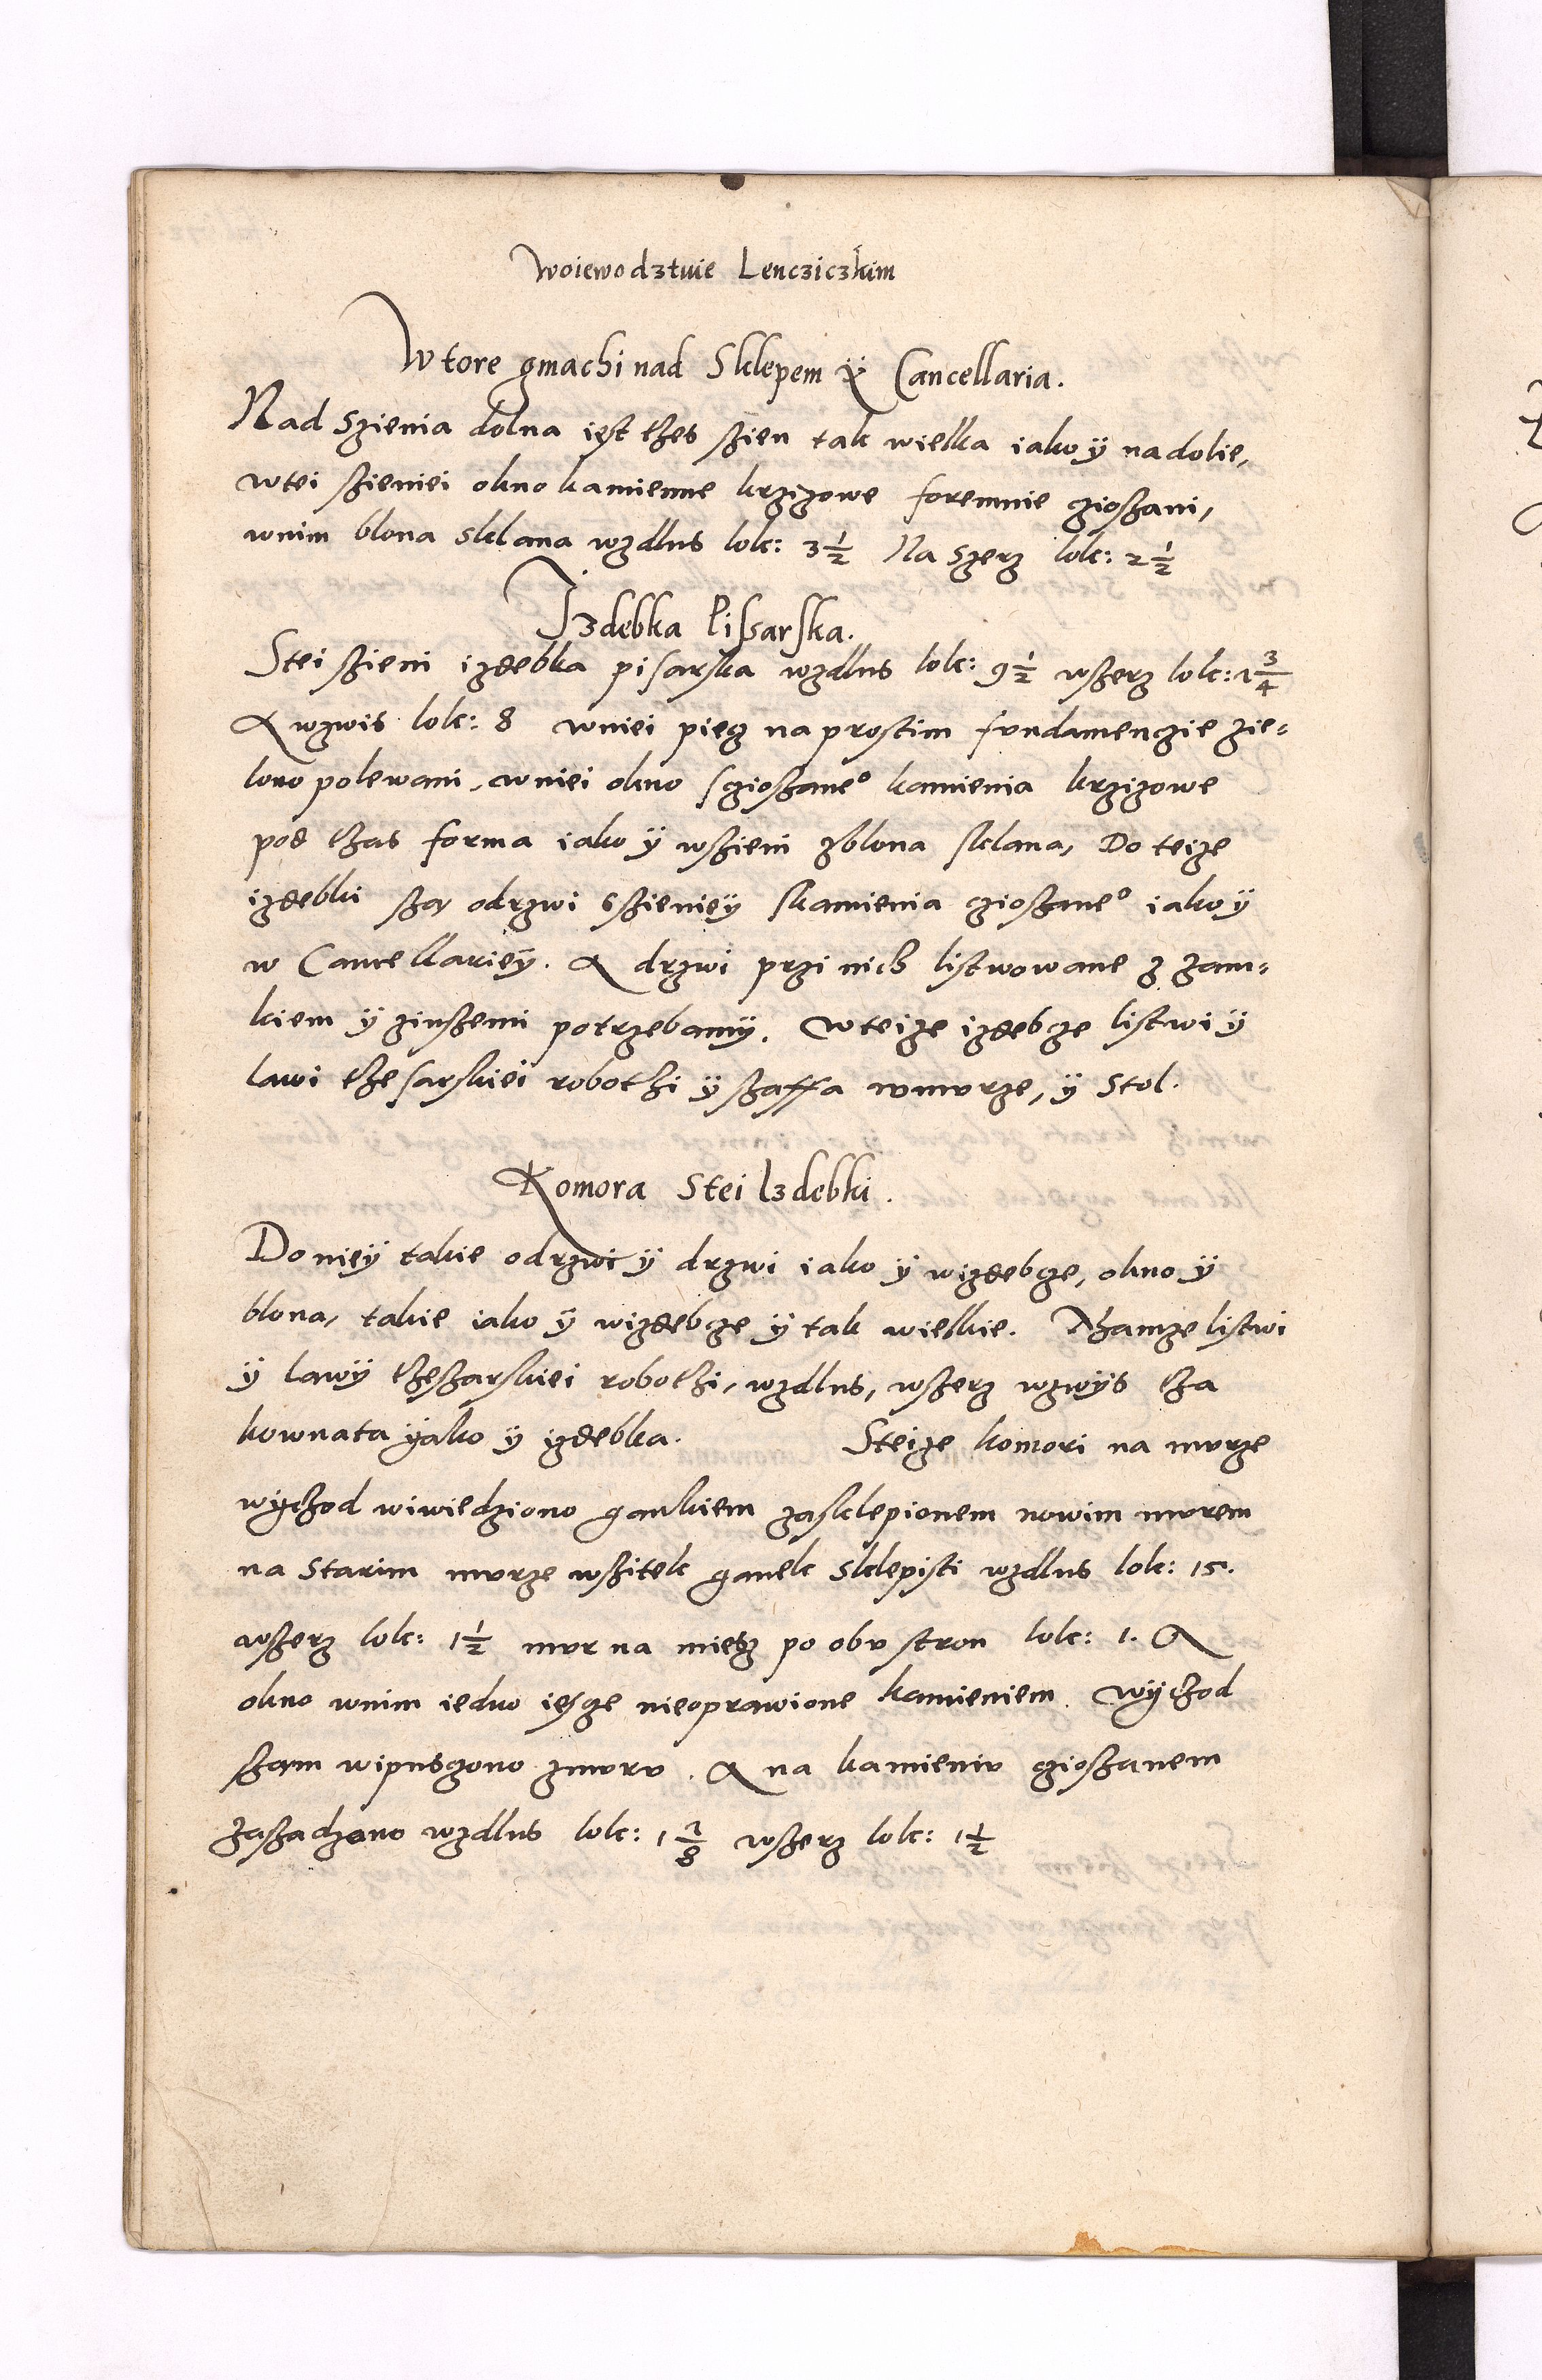 Woiewodztwie Lencziczkim
Wtore gmachi nad Sklepem ÿ Cancellaria.
Nad szienia dolna iest thes szien tak wielka iako ÿ na dolie,
wtei szieniei okno kamienne krzizowe foremnie czioszani,
wnim blona sklana wzdlus lok: 3 1/2 Na szerz lok: 2 1/2
Izdebka Pissarska.
Stei szieni izdebka pisarska wzdlus lok: 9 1/2 wszerz lok: 1 3/4
A wzwis lok: 8 wniei piecz na prostim fundamenczie zie=
lono polewani, wniei okno sczioszaneo kamienia krzizowe
pod thas forma iako ÿ wszieni zblona sklana, Do teize
izdebki sza odrzwi sszieniey skamienia cziosaneo iako ÿ
w Cancellarieÿ. A drzwi przi nich listwowane z zam=
kiem ÿ zinszemi potrzebamÿ. Wteize izdebcze listwi ÿ
lawi thesarskiei robothi ÿ szaffa wmvrze, ÿ Stol.
Komora Stei Izdebki.
Do nieÿ takie odrzwi ÿ drzwi iako ÿ wizdebcze, okno ÿ
blona, takie iako ÿ wizdebcze ÿ tak wielkie. Thamze listwi
ÿ lawÿ theszarskiei robothi, wzdlus, wszerz wzwÿs tha
kownata ÿako ÿ izdebka. Steize komori na mvrze
wÿchod wiwiedziono gankiem zasklepionem nowim mvrem
na starim mvrze wszitek ganek sklepisti wzdlus lok: 15.
wszerz lok: 1 1/2 mvr na miesz po obv stron lok: 1. A
okno wnim iedno iescze nieoprawione kamieniem. Wÿchod
szam wipusczono zmvrv. A na kamieniv cziosanem
zaszadzono wzdlus lok: 1 7/8 wszerz lok: 1 1/2